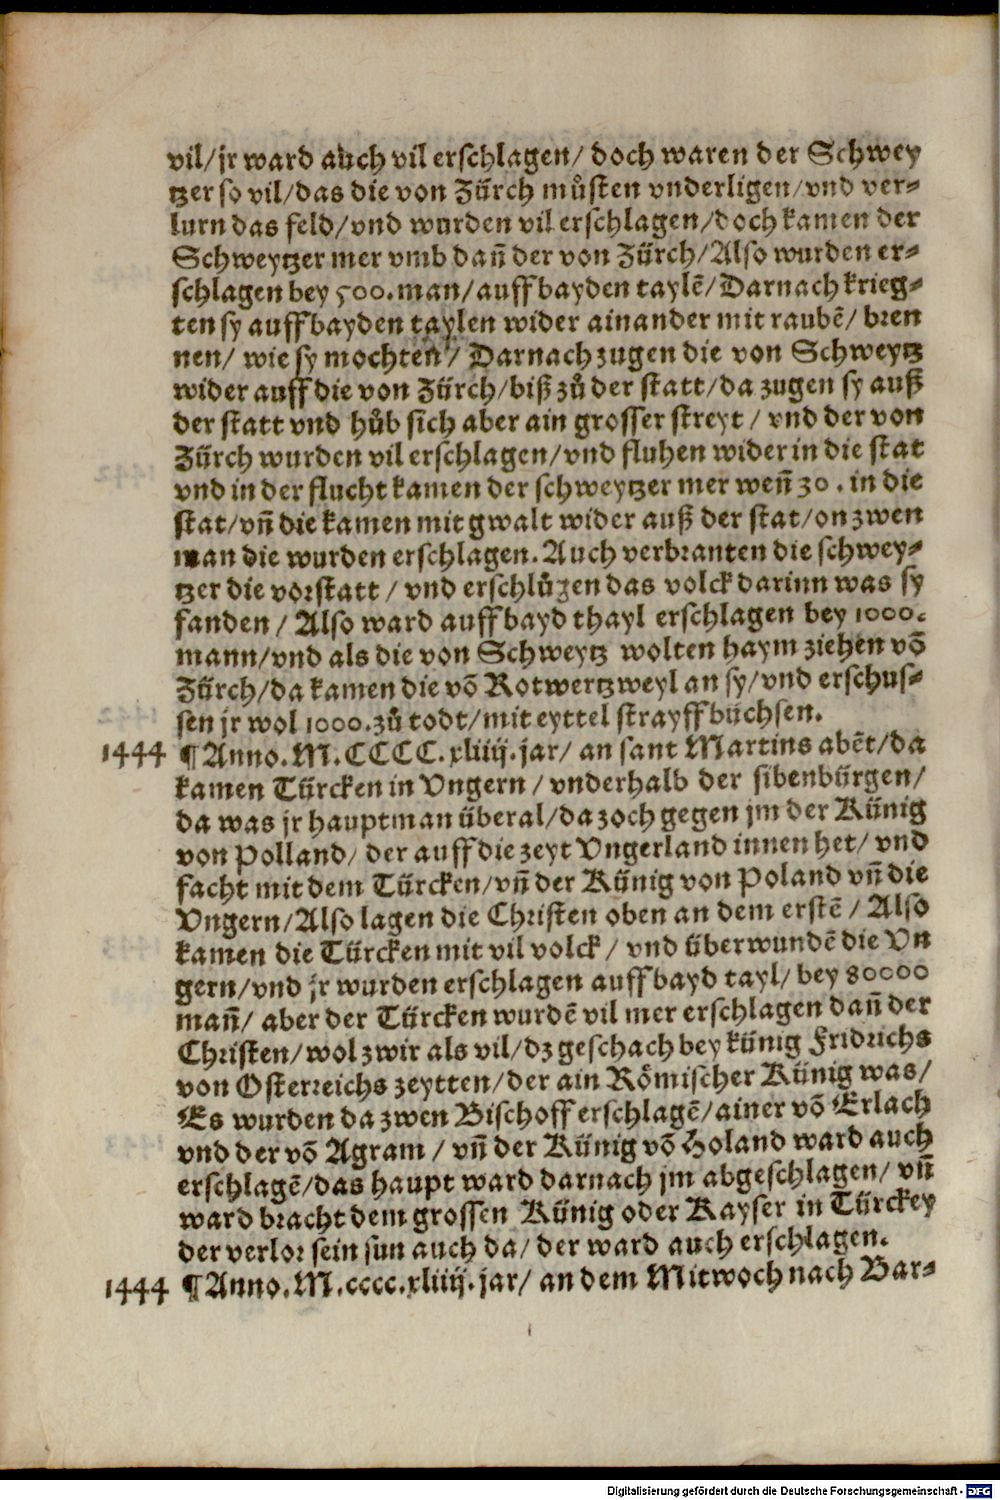 vil/ jr ward auch vil erschlagen/ doch waren der Schwey
tzer so vil/ das die von Zürch můsten vnderligen/ vnd ver-
lurn das feld/ vnd wurden vil erschlagen/ doch kamen der
Schweytzer mer vmb dañ der von Zürch/ Also wurden er-
schlagen bey 500. man/ auff bayden taylẽ/ Darnach krieg-
ten sy auff bayden taylen wider ainander mit raubẽ/ bren
nen/ wie sy mochten/ Darnach zugen die von Schweytz
wider auff die von Zürch/ biß zů der statt/ da zugen sy auß
der statt vnd hůb sich aber ain grosser streyt/ vnd der von
Zürch wurden vil erschlagen/ vnd fluhen wider in die stat
vnd in der flucht kamen der schweytzer mer weñ 30. in die
stat/ vñ die kamen mit gwalt wider auß der stat/ on zwen
man die wurden erschlagen. Auch verbranten die schwey-
tzer die vorstatt/ vnd erschlůgen das volck darinn was sy
fanden/ Also ward auff bayd thayl erschlagen bey 1000.
mann/ vnd als die von Schweytz wolten haym ziehen võ
Zürch/ da kamen die võ Rotwertzweyl an sy/ vnd erschus-
sen jr wol 1000. zů todt/ mit eyttel strayffbüchsen.
1444 ¶ Anno. M. CCCC. xliiij. jar/ an sant Martins abẽt/ da
kamen Türcken in Vngern/ vnderhalb der sibenbürgen/
da was jr hauptman überal/ da zoch gegen jm der Künig
von Polland/ der auff die zeyt Vngerland innen het/ vnd
facht mit dem Türcken/ vñ der Künig von Poland vñ die
Vngern/ Also lagen die Christen oben an dem erstẽ/ Also
kamen die Türcken mit vil volck/ vnd überwundẽ die Vn
gern/ vnd jr wurden erschlagen auff bayd tayl/ bey 80000
mañ/ aber der Türcken wurdẽ vil mer erschlagen dañ der
Christen/ wol zwir als vil/ dz geschach bey künig Fridrichs
von Osterreichs zeytten/ der ain Römischer Künig was/
Es wurden da zwen Bischoff erschlagẽ/ ainer võ Erlach
vnd der võ Agram/ vñ der Künig võ Holand ward auch
erschlagẽ/ das haupt ward darnach jm abgeschlagen/ vñ
ward bracht dem grossen Künig oder Kayser in Türckey
der verlor sein sun auch da/ der ward auch erschlagen.
1444 ¶ Anno. M. cccc. xliiij. jar/ an dem Mitwoch nach Bar-
Digitalisierung gefördert durch die Deutsche Forschungsgemeinschaft - DFG